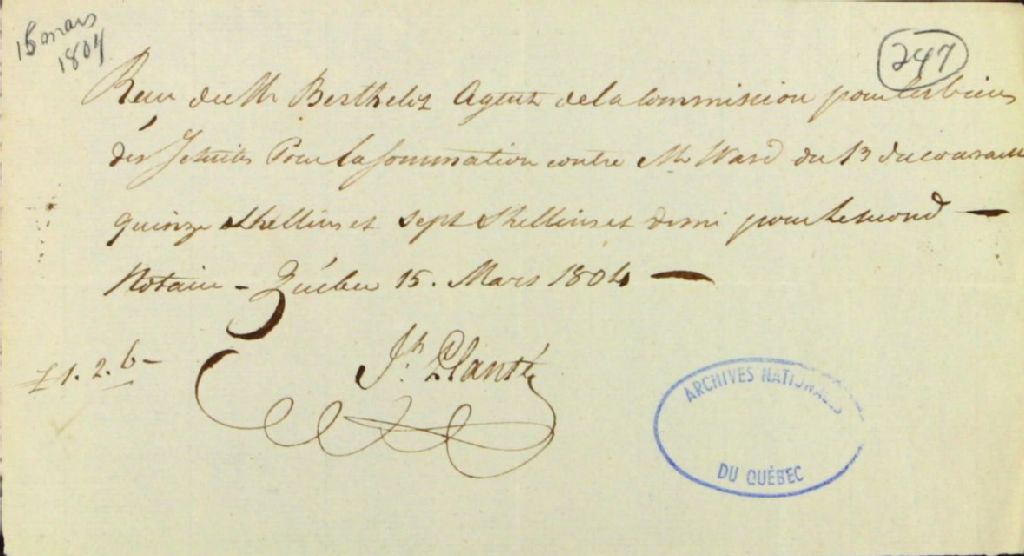 15 mars
1804
247
Recu de Mr Berthelot Agent de la Commission pour les biens
des Jesuites Pour la sommation contre Mr Ward du 13 du courant
quinze Shellins et sept Shellins et demi pour le second —
Notaire - Québec 15. Mars 1804 —
£1.2.6-
Jh. Planté
ARCHIVES NATIONALES
DU QUÉBEC